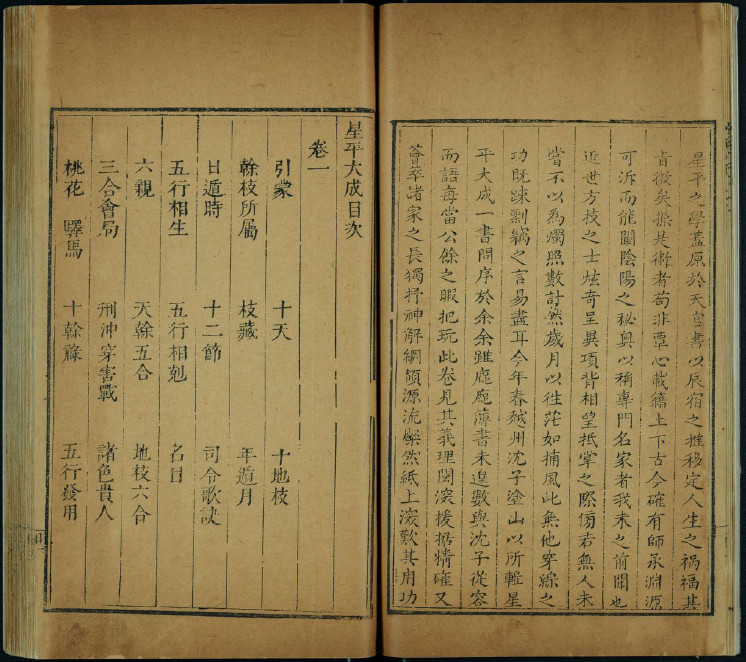 星平之學蓋原於天官書以辰宿之推移定人生之禍福其
旨微矣操是術者苟非覃心載籍上下古今確有師承淵源
可泝而能闡陰陽之秘奥以稱專門名家者我未之前聞也
近世方技之士炫奇呈異項背相望抵掌之際傍若無人未
嘗不以為燭照數計然歲月以徃茫如捕風此無他穿綜之
功既疎剽竊之言易盡耳今年春越州沈子塗山以所輯星
平大成一書問序於余余雖庭薄書未遑數與沈子從容
而語每當公餘之暇把玩此卷見其義理閎深援据精確又
薈萃諸家之長獨抒神解綱領源流燦然紙上深歎其用功
星平大成目次
卷一
引蒙 十天 十地枝
榦枝所屬 枝藏 年遁月
日遁時 十二節 司令歌訣
五行相生 五行相剋 名目
六親 天榦五合 地枝六合
三合會局 刑沖穿害戰 諸色貴人
桃花 驛馬 十榦祿 五行發用